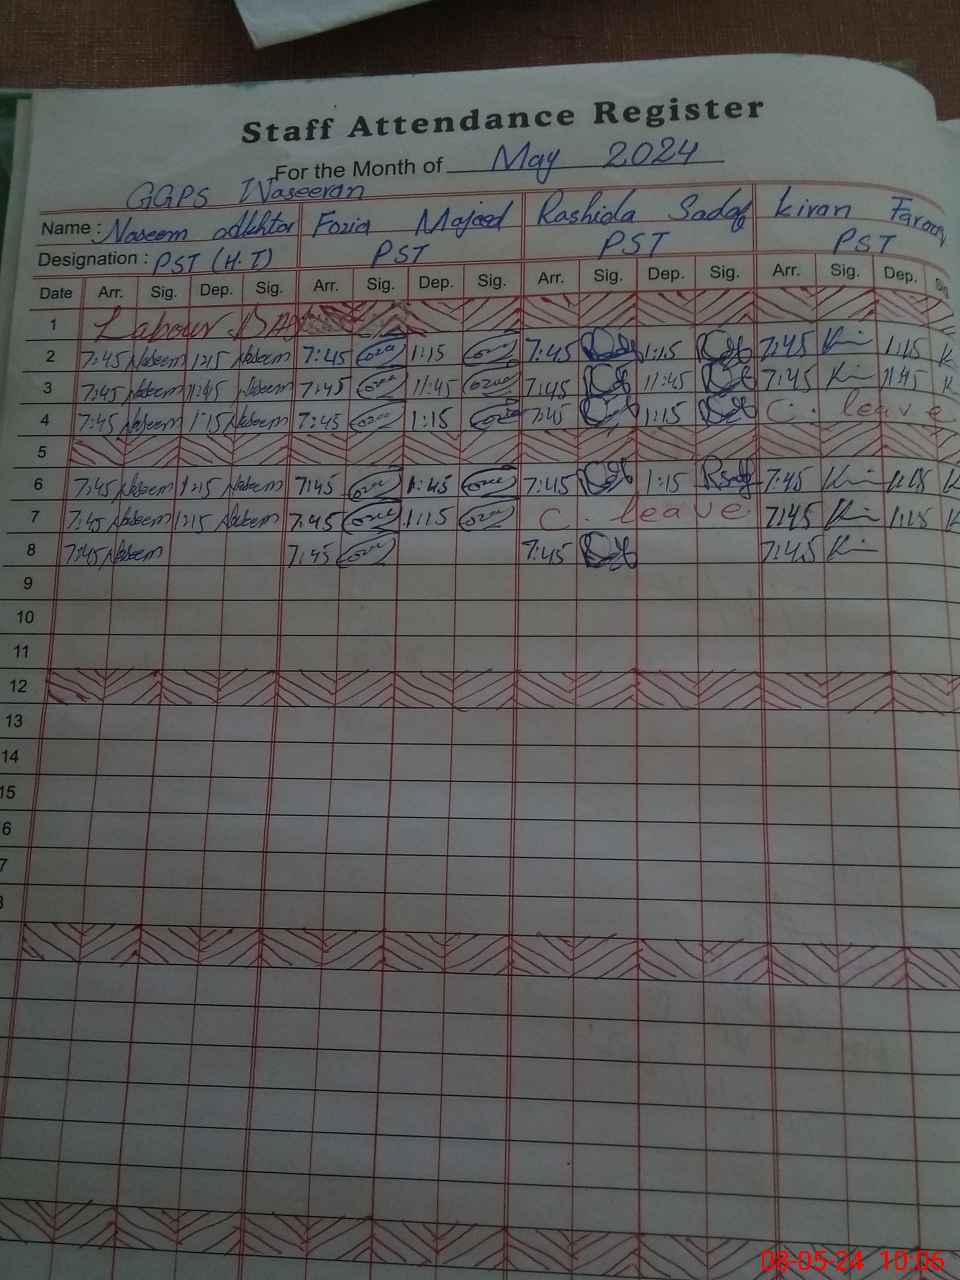 Staff Attendance Register
For the Month of May 2024
GGPS Waseeran
Name : Naseem Akhtar Fozia Majeed Rashida Sadaf Kiran Farooq
Designation : PST (H.T) PST PST PST
Date Arr. Sig. Dep. Sig. Arr. Sig. Dep. Sig. Arr. Sig. Dep. Sig. Arr. Sig. Dep.
1 Labour Day
2 7:45 Naseem 1:15 Naseem 7:45 1:15 7:45 1:15 7:45 1:15
3 7:45 Naseem 11:45 Naseem 7:45 11:45 7:45 11:45 7:45 11:45
4 7:45 Naseem 1:15 Naseem 7:45 1:15 7:45 1:15 C. leave
5
6 7:45 Naseem 1:15 Naseem 7:45 1:45 7:45 1:15 7:45
7 7:45 Naseem 1:15 Naseem 7:45 1:15 C. leave 7:45 1:15
8 7:45 Naseem 7:45 7:45 7:45
9
10
11
12
13
14
15
6
7
08-05-24 10:06